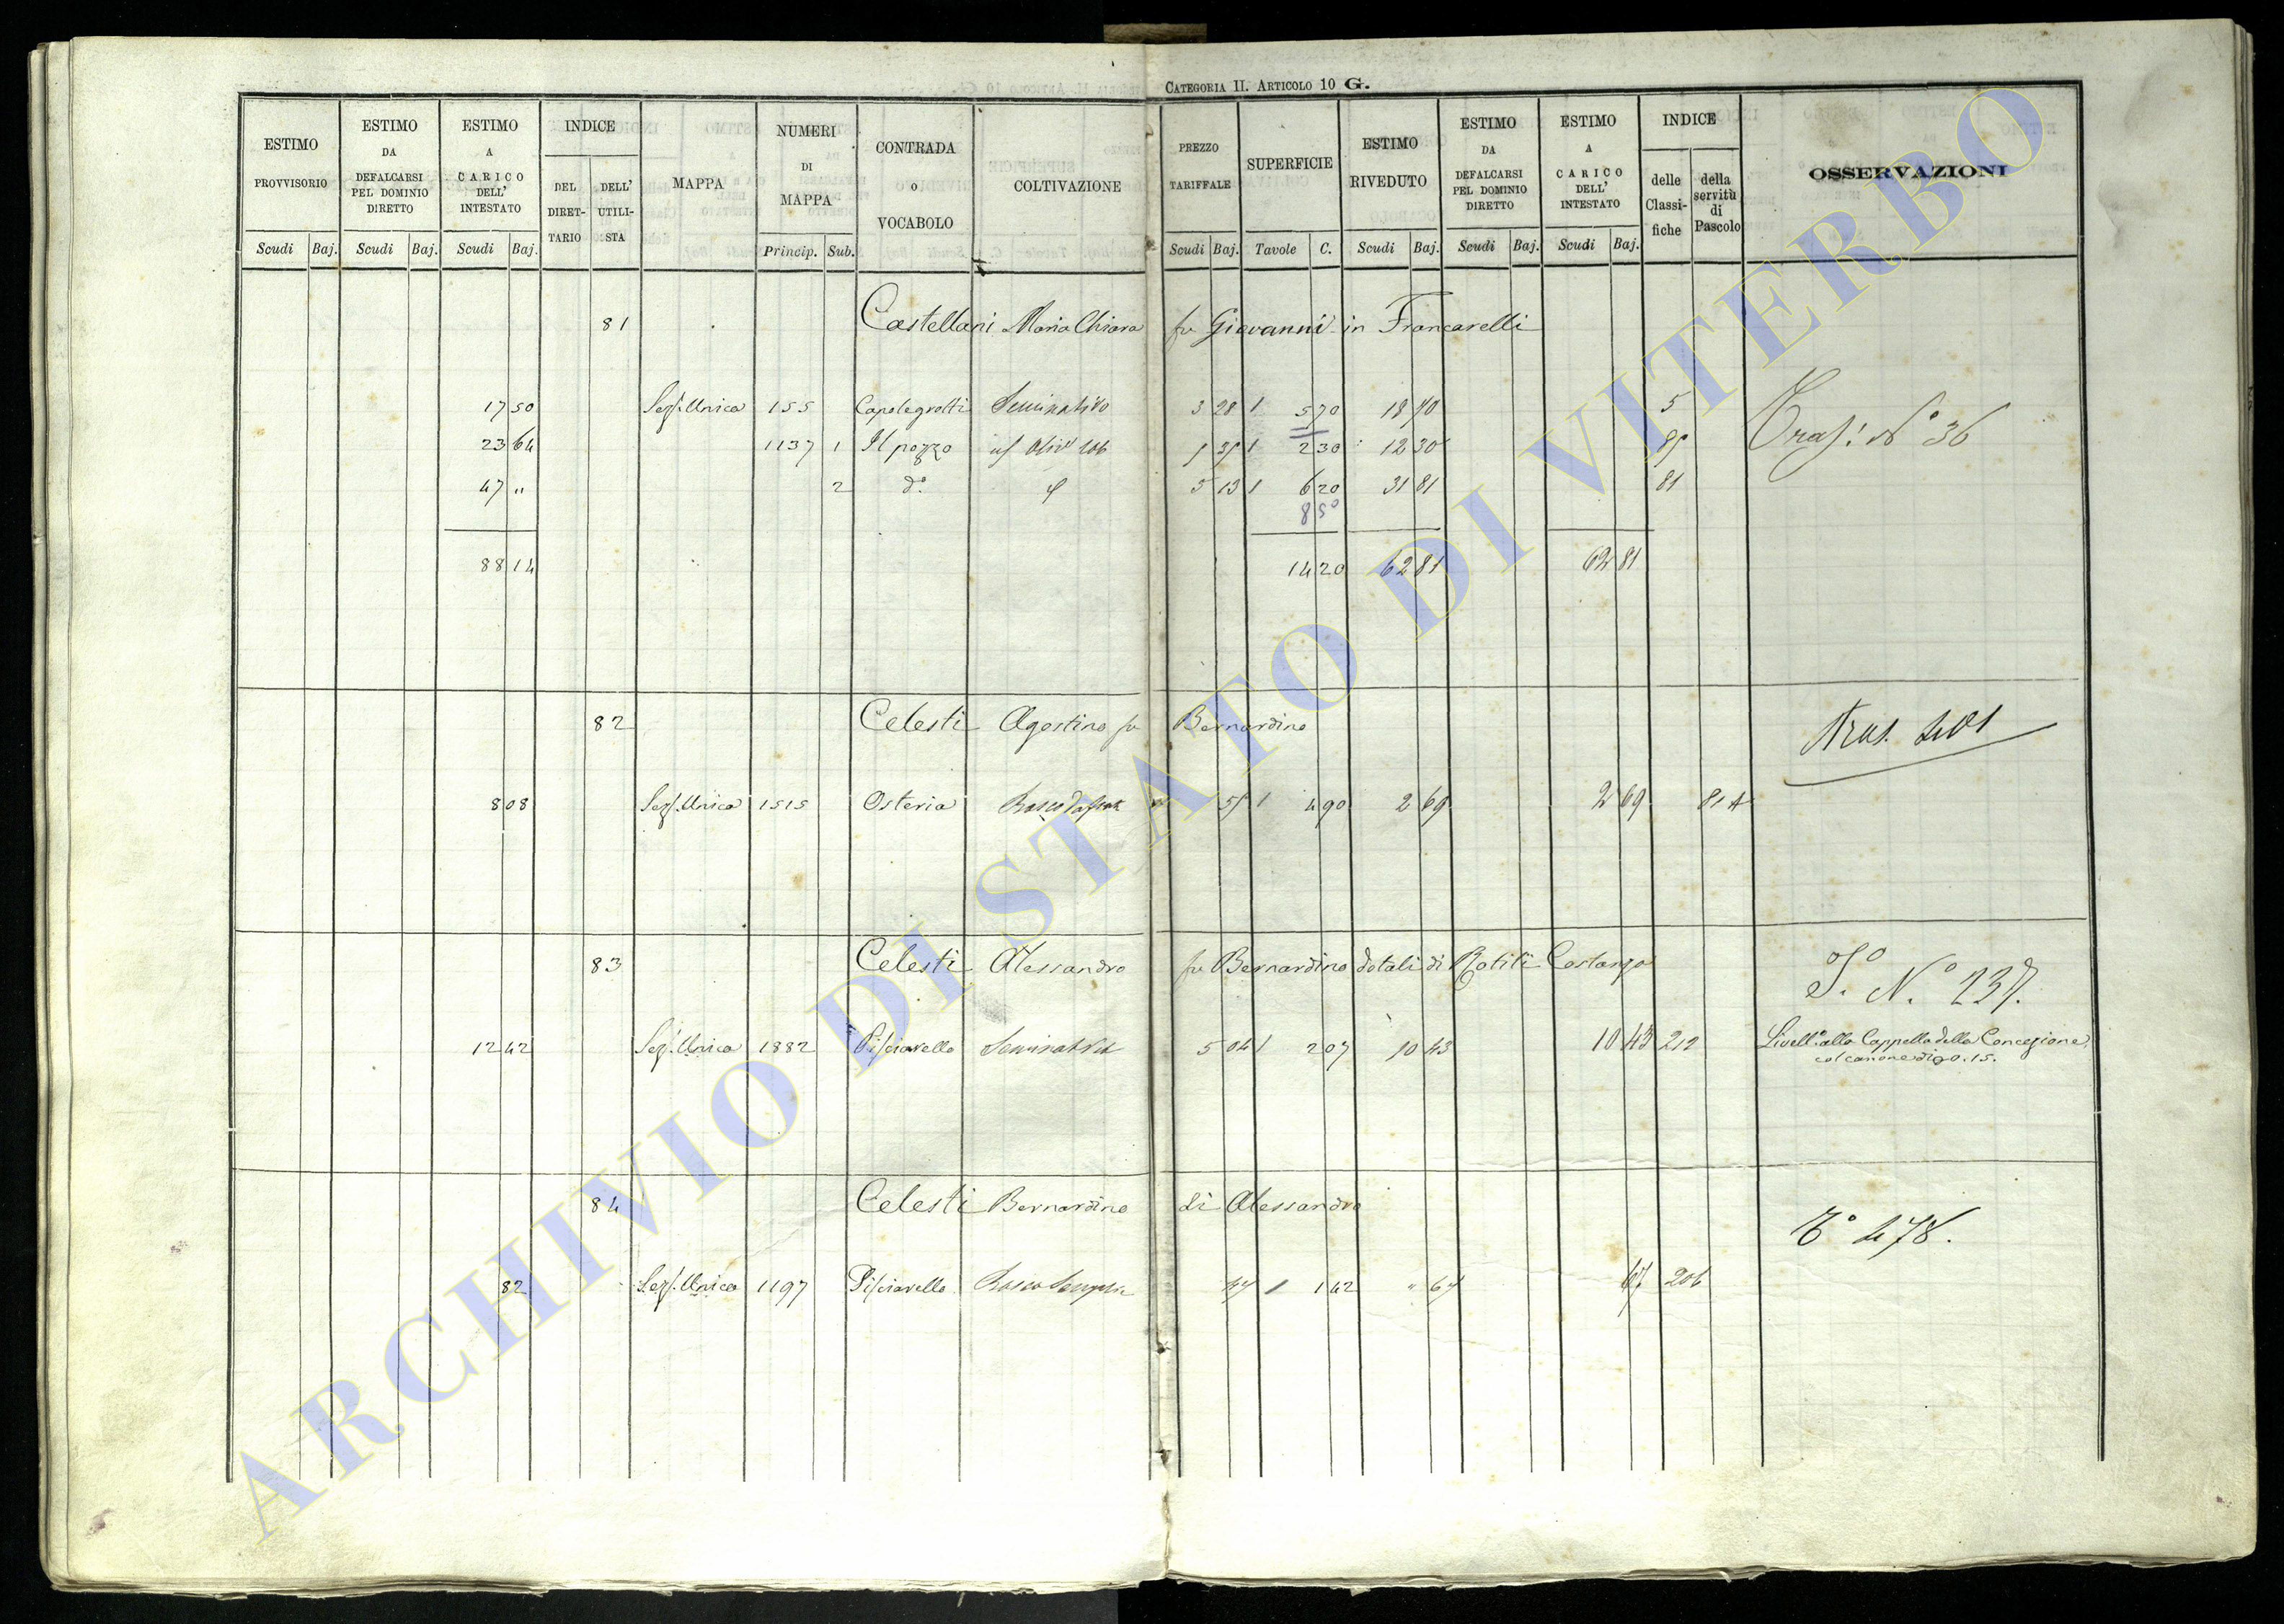 CATEGORIA II. ARTICOLO 10 G.
ESTIMO PROVVISORIO Scudi Baj.
ESTIMO DA DEFALCARSI PEL DOMINIO DIRETTO Scudi Baj.
ESTIMO A CARICO DELL' INTESTATO Scudi Baj.
INDICE DEL DIRETTARIO DELL' UTILISTA
MAPPA
NUMERI DI MAPPA Princip. Sub.
CONTRADA O VOCABOLO
COLTIVAZIONE
PREZZO TARIFFALE Scudi Baj.
SUPERFICIE Tavole C.
ESTIMO RIVEDUTO Scudi Baj.
ESTIMO DA DEFALCARSI PEL DOMINIO DIRETTO Scudi Baj.
ESTIMO A CARICO DELL' INTESTATO Scudi Baj.
INDICE delle Classifiche della servitù di Pascolo
OSSERVAZIONI
81 Castellani Maria Chiara fu Giovanni in Francarelli
17 50 Sez. Unica 155 Capolegrotti Seminativo 3 28 1 5 70 18 70 5 Trasf. N° 36
23 64 1137 1 Il pozzo 1 2 30 12 30
47 " 2 d° 5 13 1 6 20 31 81 81
8 50
88 14 14 20 62 81 62 81
82 Celesti Agostino fu Bernardino
8 08 Sez. Unica 1515 Osteria 1 4 90 2 69 2 69
83 Celesti Alessandro fu Bernardino dotali di Rotili Costanza
T° N° 237.
12 42 Sez. Unica 1882 Pisciarello Seminativo 5 04 1 2 07 10 43 10 43 212 Livell. alla Cappella della Concezione
col canone di 0.15.
84 Celesti Bernardino di Alessandro
T° 478.
82 Sez. Unica 1197 Pisciarello Bosco 47 1 1 42 " 67 67 206
ARCHIVIO DI STATO DI VITERBO